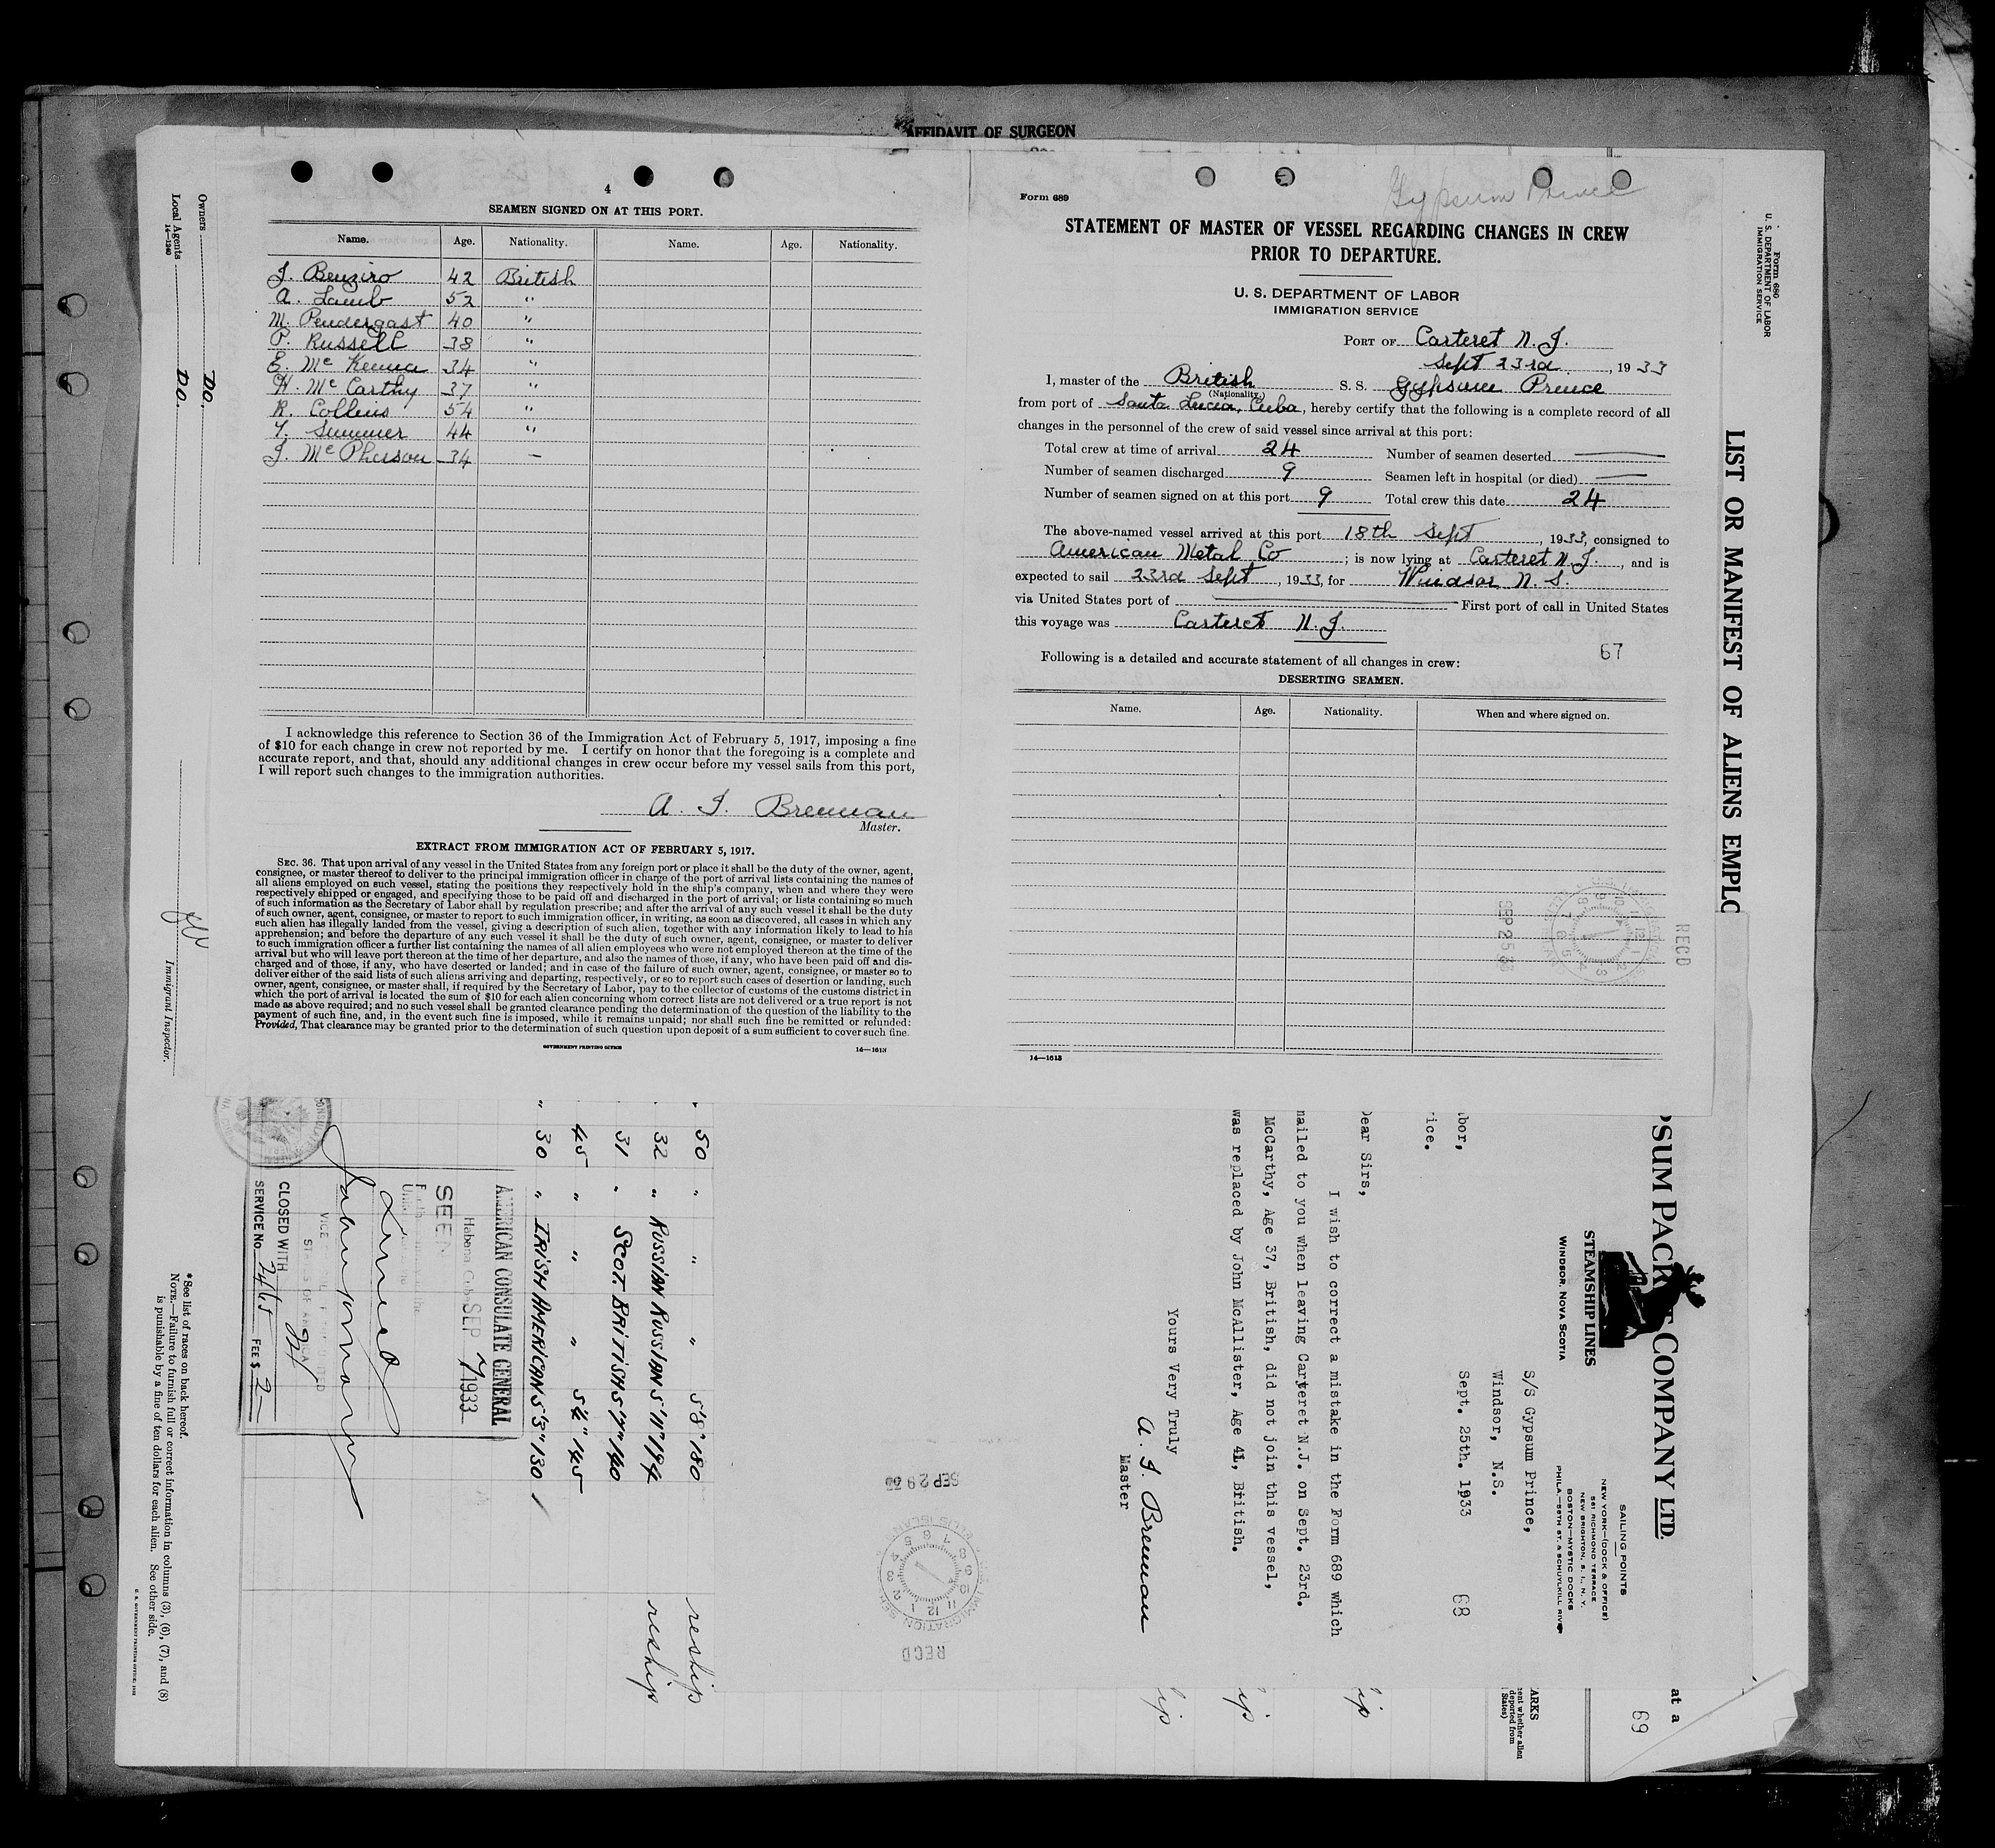 AFFIDAVIT OF SURGEON
4
SEAMEN SIGNED ON AT THIS PORT.
Name. Age. Nationality. Name. Age. Nationality.
J. Benziro 42 British
A. Lamb 52 "
M. Pendergast 40 "
P. Russell 38 "
E. Mc Kenna 34 "
H. Mc Carthy 37 "
R. Collins 54 "
T. Summer 44 "
J. Mc Pherson 34 —
I acknowledge this reference to Section 36 of the Immigration Act of February 5, 1917, imposing a fine
of $10 for each change in crew not reported by me. I certify on honor that the foregoing is a complete and
accurate report, and that, should any additional changes in crew occur before my vessel sails from this port,
I will report such changes to the immigration authorities.
A. J. Brennan
Master.
EXTRACT FROM IMMIGRATION ACT OF FEBRUARY 5, 1917.
SEC. 36. That upon arrival of any vessel in the United States from any foreign port or place it shall be the duty of the owner, agent,
consignee, or master thereof to deliver to the principal immigration officer in charge of the port of arrival lists containing the names of
all aliens employed on such vessel, stating the positions they respectively hold in the ship's company, when and where they were
respectively shipped or engaged, and specifying those to be paid off and discharged in the port of arrival; or lists containing so much
of such information as the Secretary of Labor shall by regulation prescribe; and after the arrival of any such vessel it shall be the duty
of such owner, agent, consignee, or master to report to such immigration officer, in writing, as soon as discovered, all cases in which any
such alien has illegally landed from the vessel, giving a description of such alien, together with any information likely to lead to his
apprehension; and before the departure of any such vessel it shall be the duty of such owner, agent, consignee, or master to deliver
to such immigration officer a further list containing the names of all alien employees who were not employed thereon at the time of the
arrival but who will leave port thereon at the time of her departure, and also the names of those, if any, who have been paid off and dis-
charged and of those, if any, who have deserted or landed; and in case of the failure of such owner, agent, consignee, or master so to
deliver either of the said lists of such aliens arriving and departing, respectively, or so to report such cases of desertion or landing, such
owner, agent, consignee, or master shall, if required by the Secretary of Labor, pay to the collector of customs of the customs district in
which the port of arrival is located the sum of $10 for each alien concerning whom correct lists are not delivered or a true report is not
made as above required; and no such vessel shall be granted clearance pending the determination of the question of the liability to the
payment of such fine, and, in the event such fine is imposed, while it remains unpaid; nor shall such fine be remitted or refunded:
Provided, That clearance may be granted prior to the determination of such question upon deposit of a sum sufficient to cover such fine.
GOVERNMENT PRINTING OFFICE 14—1613
Form 689
Gypsum Prince
STATEMENT OF MASTER OF VESSEL REGARDING CHANGES IN CREW
PRIOR TO DEPARTURE.
U. S. DEPARTMENT OF LABOR
IMMIGRATION SERVICE
PORT OF Carteret N. J.
Sept 23rd, 1933
I, master of the British S. S. Gypsum Prince
(Nationality.)
from port of Santa Lucia, Cuba, hereby certify that the following is a complete record of all
changes in the personnel of the crew of said vessel since arrival at this port:
Total crew at time of arrival 24 Number of seamen deserted —
Number of seamen discharged 9 Seamen left in hospital (or died) —
Number of seamen signed on at this port 9 Total crew this date 24
The above-named vessel arrived at this port 18th Sept, 1933, consigned to
American Metal Co; is now lying at Carteret N. J., and is
expected to sail 23rd Sept, 1933, for Windsor N. S.
via United States port of — First port of call in United States
this voyage was Carteret N. J.
67
Following is a detailed and accurate statement of all changes in crew:
DESERTING SEAMEN.
Name. Age. Nationality. When and where signed on.
SEP 25 33
RECD
14—1613
Form 680
U. S. DEPARTMENT OF LABOR
IMMIGRATION SERVICE
LIST OR MANIFEST OF ALIENS EMPLO
Owners DO.
Local Agents DO.
14—1240
Immigrant Inspector.
PSUM PACKET COMPANY LTD.
STEAMSHIP LINES
WINDSOR, NOVA SCOTIA
SAILING POINTS
NEW YORK—(DOCK & OFFICE)
561 RICHMOND TERRACE
NEW BRIGHTON, S. I., N. Y.
BOSTON—MYSTIC DOCKS
PHILA.—58TH ST. & SCHUYLKILL RIVER
S/S Gypsum Prince,
Windsor, N.S.
Sept. 25th. 1933
68
bor,
ice.
ear Sirs,
I wish to correct a mistake in the Form 689 which
mailed to you when leaving Carteret N.J. on Sept. 23rd.
McCarthy, Age 37, British, did not join this vessel,
was replaced by John McAllister, Age 41, British.
Yours Very Truly
A. J. Brennan
Master
SEP 29 33
IMMIGRATION SER
ELLIS ISLAND
RECD
50 " " " 5'8" 180 reship
32 " RUSSIAN RUSSIAN 5'11" 194 reship
31 " SCOT. BRITISH 5'7" 140
45 " " " 5'6" 145
" 30 " IRISH AMERICAN 5'3" 130
AMERICAN CONSULATE GENERAL
Habana Cuba SEP 7 1933
SEEN
CLOSED WITH
SERVICE No. 2465 FEE $ 2—
*See list of races on back hereof.
NOTE.—Failure to furnish full or correct information in columns (3), (6), (7), and (8)
is punishable by a fine of ten dollars for each alien. See other side.
ARKS
ent whether alien
deported from
States)
at a
69